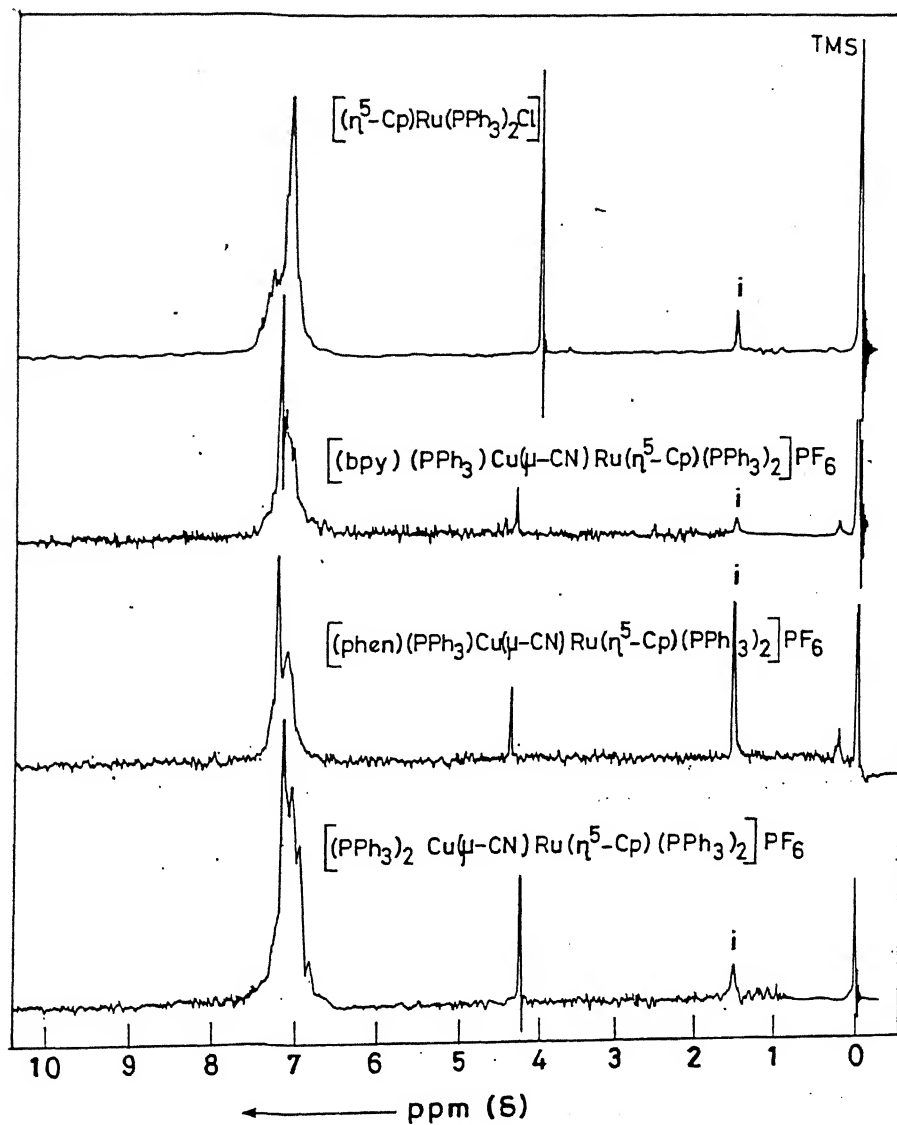 TMS
[(η⁵-Cp)Ru(PPh₃)₂Cl]
i
[(bpy)(PPh₃)Cu(μ-CN)Ru(η⁵-Cp)(PPh₃)₂]PF₆
i
i
[(phen)(PPh₃)Cu(μ-CN)Ru(η⁵-Cp)(PPh₃)₂]PF₆
[(PPh₃)₂ Cu(μ-CN)Ru(η⁵-Cp)(PPh₃)₂]PF₆
i
10 9 8 7 6 5 4 3 2 1 0
ppm (δ)